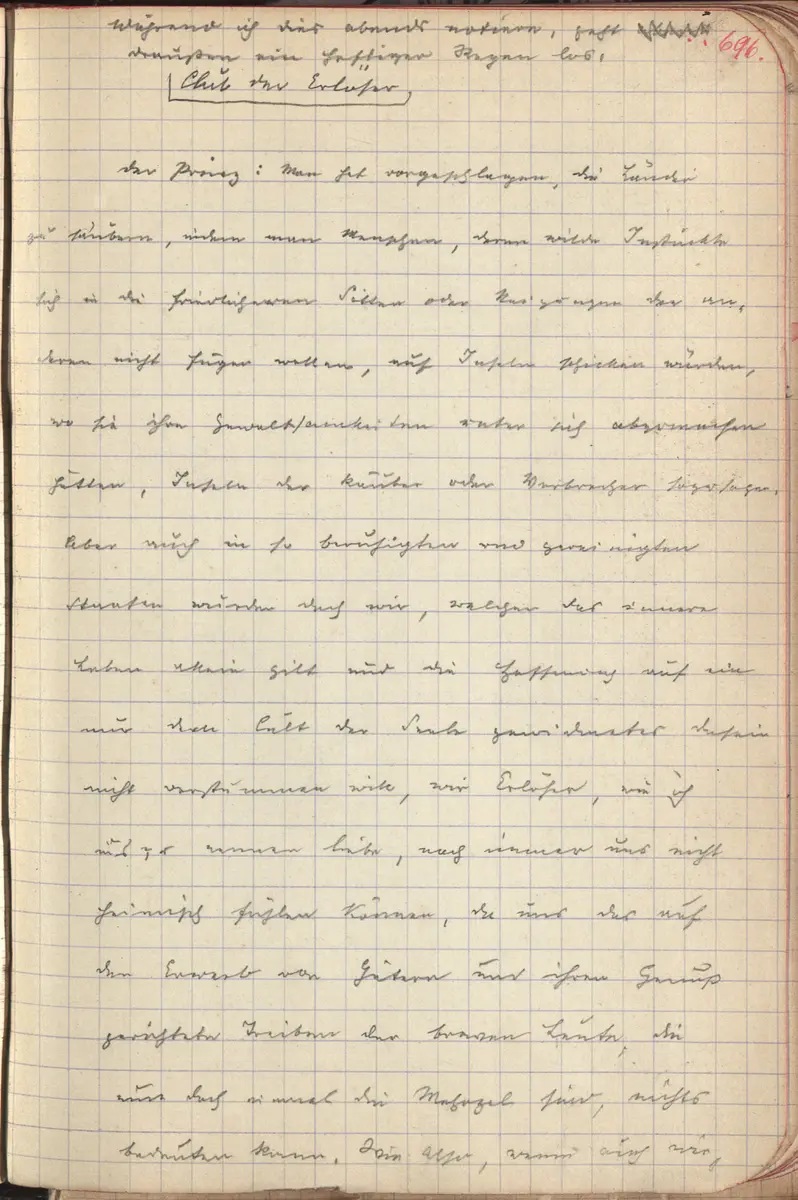 Während ich dies abends notiere, geht
696.
draußen ein heftiger Regen los.
Club der Erlöser.
Der Prinz: Man hat vorgeschlagen, die Länder
zu säubern, indem man Menschen, deren wilde Instinkte
sich in die friedlicheren Sitten oder Neigungen der an-
deren nicht fügen wollen, auf Inseln schicken würden,
wo sie ihre Gewaltsamkeiten unter sich abzumachen
hätten, Inseln der Räuber oder Verbrecher sozusagen.
Aber auch in so beruhigten und gereinigten
Staaten würden doch wir, welchen das innere
Leben allein gilt und die Hoffnung auf ein
nur dem Cult der Seele gewidmetes Dasein
nicht verstummen will, wir Erlöser, wie ich
uns zu nennen liebe, noch immer uns nicht
heimisch fühlen können, da uns das auf
den Erwerb von Gütern und ihren Genuß
gerichtete Treiben der braven Leute, die
nun doch einmal die Mehrzal sind, nichts
bedeuten kann. Wie also, wenn auch wir,